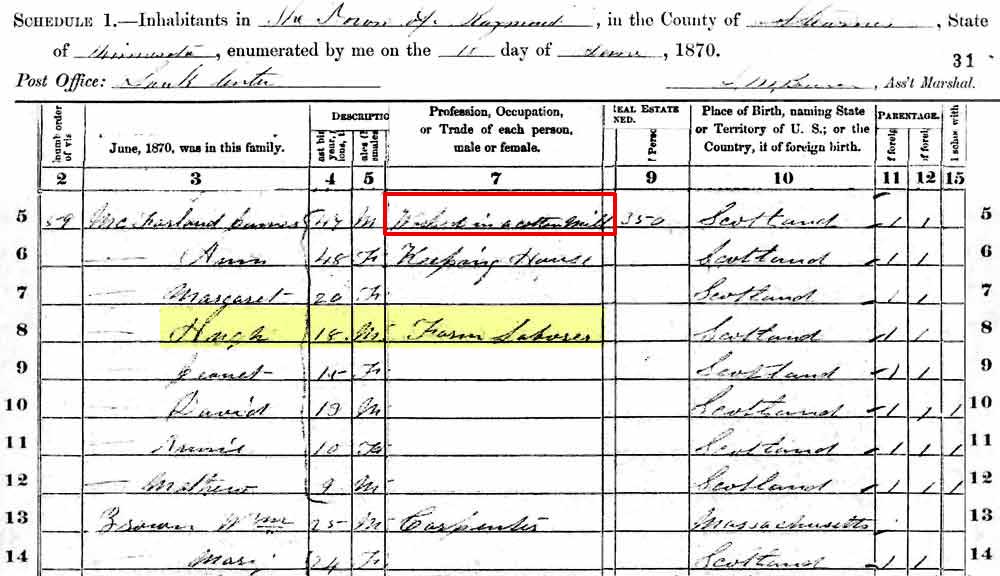 SCHEDULE 1.—Inhabitants in The Town of Raymond, in the County of Stearns, State
of Minnesota, enumerated by me on the day of June, 1870.
31
Post Office: Sauk Center Ass't Marshal.
DESCRIPTIO
Profession, Occupation, or Trade of each person, male or female.
EAL ESTATE NED.
Place of Birth, naming State or Territory of U. S.; or the Country, if of foreign birth.
PARENTAGE.
June, 1870, was in this family.
2 3 4 5 7 9 10 11 12 15
5 59 McFarland James 49 M Worked in a cotton Mill 350 Scotland 1 1 5
6 — Ann 48 F Keeping House Scotland 1 1 6
7 — Margaret 20 F Scotland 1 1 7
8 — Hugh 18 M Farm Laborer Scotland 1 1 8
9 — Jeanet 15 F Scotland 1 1 9
10 — David 13 M Scotland 1 1 1 10
11 — Annie 10 F Scotland 1 1 1 11
12 — Mathew 9 M Scotland 1 1 1 12
13 Brown Wm 25 M Carpenter Massachusetts 13
14 — Mary 24 F Scotland 1 1 14